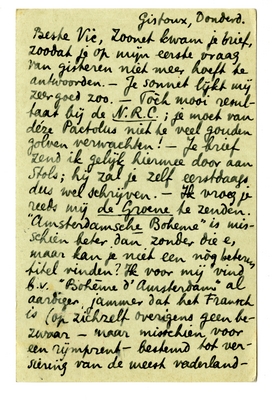 Gistoux, Donderd.
Beste Vic, Zoonet kwam je brief,
zoodat je op mijn eerste vraag
van gisteren niet meer hoeft te
antwoorden. — Je sonnet lijkt mij
zeer goed zoo. — Tòch mooi resul-
taat bij de N.R.C.; je moet van
déze Pactolus niet te veel gouden
golven verwachten! — Je brief
zend ik gelijk hiermee door aan
Stols; hij zal je zelf eerstdaags
dus wel schrijven. — Ik vroeg je
reeds mij de Groene te zenden.
"Amsterdamsche Bohème" is mis-
schien beter dan zonder die e,
maar kan je niet een nòg beteren
titel vinden? Ik voor mij vind
b.v. "Bohème d'Amsterdam" al
aardiger, jammer dat het Fransch
is (op zichzelf overigens geen be-
zwaar — maar misschien voor
een rijmprent — bestemd tot ver-
siering van de meest vaderland-